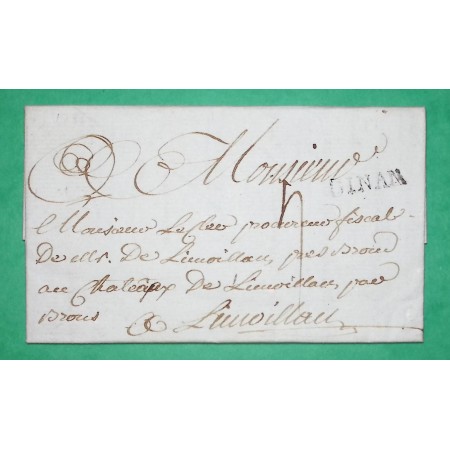 A Monsieur
DINAN
4
Monsieur Le procureur fiscal
De Mr. De Limoillan pres Broud
au Chateaux De Limoillan par
Brons
A Limoillan